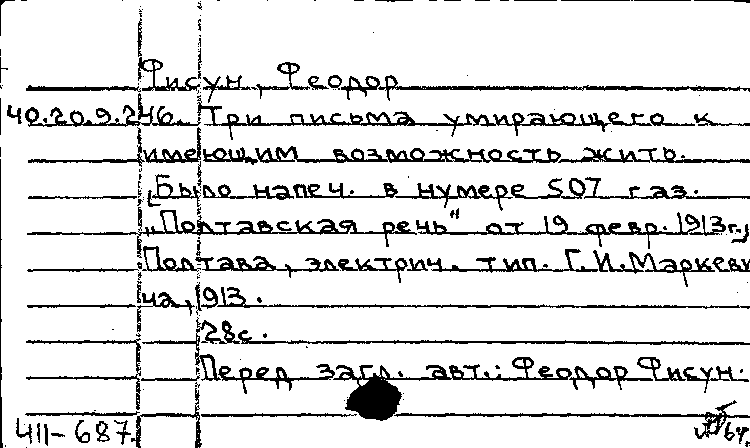 Фисун, Феодор
40.20.9.246. Три письма умирающего к
имеющим возможность жить.
[Было напеч. в нумере 507 газ.
„Полтавская речь" от 19 февр. 1913г.]
Полтава, электрич. тип. Г.И.Маркеви
ча, 1913.
28с.
Перед загл. авт.: Феодор Фисун.
411-687.